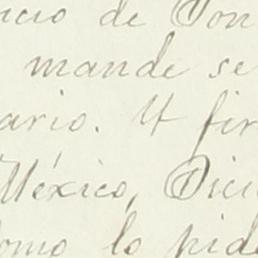 icio de Don
mande se
ario. Y fir
México, Dici
como lo pide